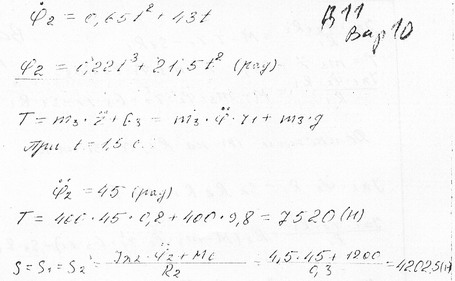 Д11
Вар10
φ̇₂ = 0,65t² + 43t
φ₂ = 0,22t³ + 21,5t² (рад)
T = m₃·z̈ + G₃ = m₃·φ̈·r₁ + m₃·g
при t = 1,5 с.
φ̈₂ = 45 (рад)
T = 400·45·0,2 + 400·9,8 = 7520 (Н)
S = S₁ = S₂ = (Jn2·φ̈₂ + Mc) / R₂ = (4,5·45 + 1200) / 0,3 = 4202,5(Н)